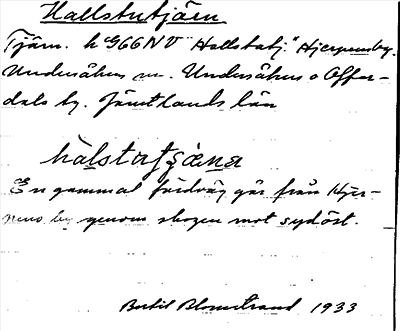 Hallstutjärn
Tjärn. h G66NV "Hallstatj." Hjerpensby.
Undersåkers sn. Undersåkers o Offer-
dals tg. Jämtlands län
hàlstatjæ̀na
En gammal färdväg går från Hjer-
pens by genom skogen mot sydöst.
Bertil Blomstrand 1933